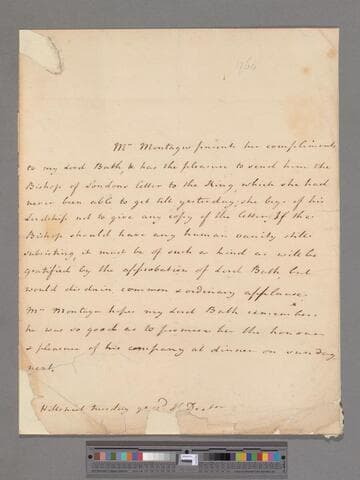 Mrs Montagu presents her compliments
to my Lord Bath, & has the pleasure to send him the
Bishop of Londons letter to the King, which she had
never been able to get till yesterday, she begs of his
Lordship not to give any copy of the letter, If the
Bishop should have any human vanity still
subsisting, it must be of such a kind as will be
gratified by the approbation of Lord Bath but
would disdain common & ordinary applause.
Mrs Montagu hopes my Lord Bath remembers
he was so good as to promise her the honour
& pleasure of his company at dinner on sunday
next.
Hillstreet tuesday ye